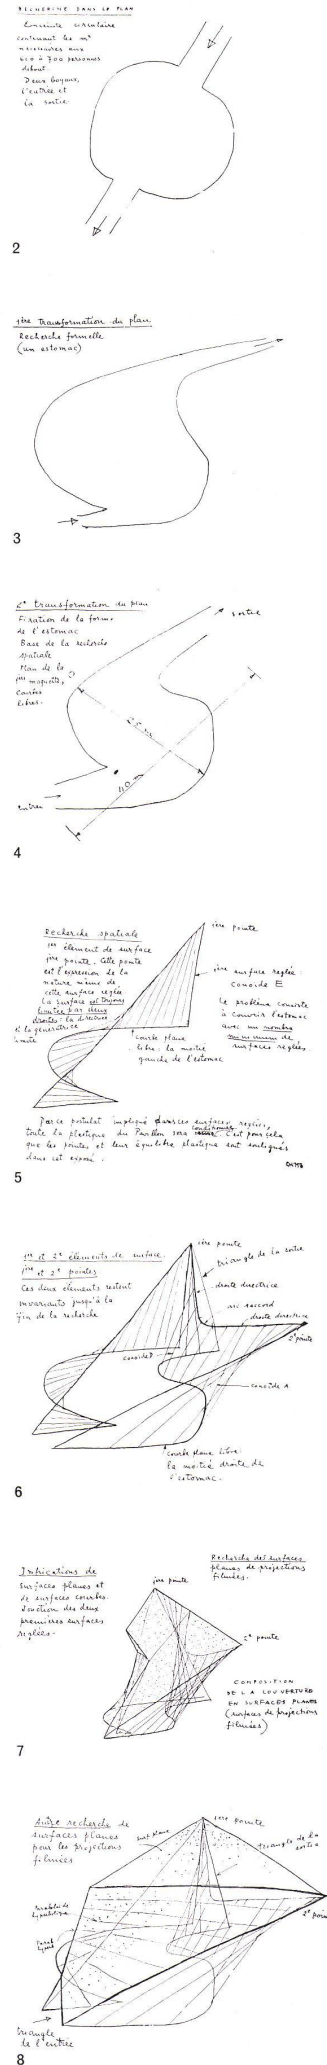 RECHERCHE DANS LE PLAN
Enceinte circulaire
contenant les m²
nécessaires aux
600 à 700 personnes
debout.
Deux boyaux,
l'entrée et
la sortie.
2
1ère transformation du plan
Recherche formelle
(un estomac)
3
2e transformation du plan
Fixation de la forme
de l'estomac
Base de la recherche
spatiale
Plan de la
1ère maquette,
Courbes
libres.
sortie
entrée
4
Recherche spatiale
1er élément de surface
1ère pointe. Cette pointe
est l'expression de la
nature même de
cette surface réglée
La surface est toujours
limitée par deux
droites : la directrice
et la génératrice
limite
1ère pointe
1ère surface réglée :
conoïde E
Le problème consiste
à couvrir l'estomac
avec un nombre
minimum de
surfaces réglées.
Courbe plane
libre : la moitié
gauche de l'estomac
Par ce postulat impliqué dans ces surfaces réglées,
toute la plastique du Pavillon sera conditionnée. C'est pour cela
que les pointes et leur équilibre plastique sont soulignés
dans cet exposé.
5
1er et 2e éléments de surface.
1ère et 2e pointes
Ces deux éléments restent
invariants jusqu'à la
fin de la recherche
1ère pointe
triangle de la sortie
droite directrice
arc raccord
droite directrice
2e pointe
conoïde A
Courbe plane libre :
la moitié droite de
l'estomac.
6
Imbrications de
surfaces planes et
de surfaces courbes.
Jonction des deux
premières surfaces
réglées.
Recherche des surfaces
planes de projections
filmées.
1ère pointe
2e pointe
COMPOSITION
DE LA COUVERTURE
EN SURFACES PLANES
(surfaces de projections
filmées)
7
Autre recherche de
surfaces planes
pour les projections
filmées
1ère pointe
surf. plane
triangle de la
sortie
2e poin
triangle
de l'entrée
8